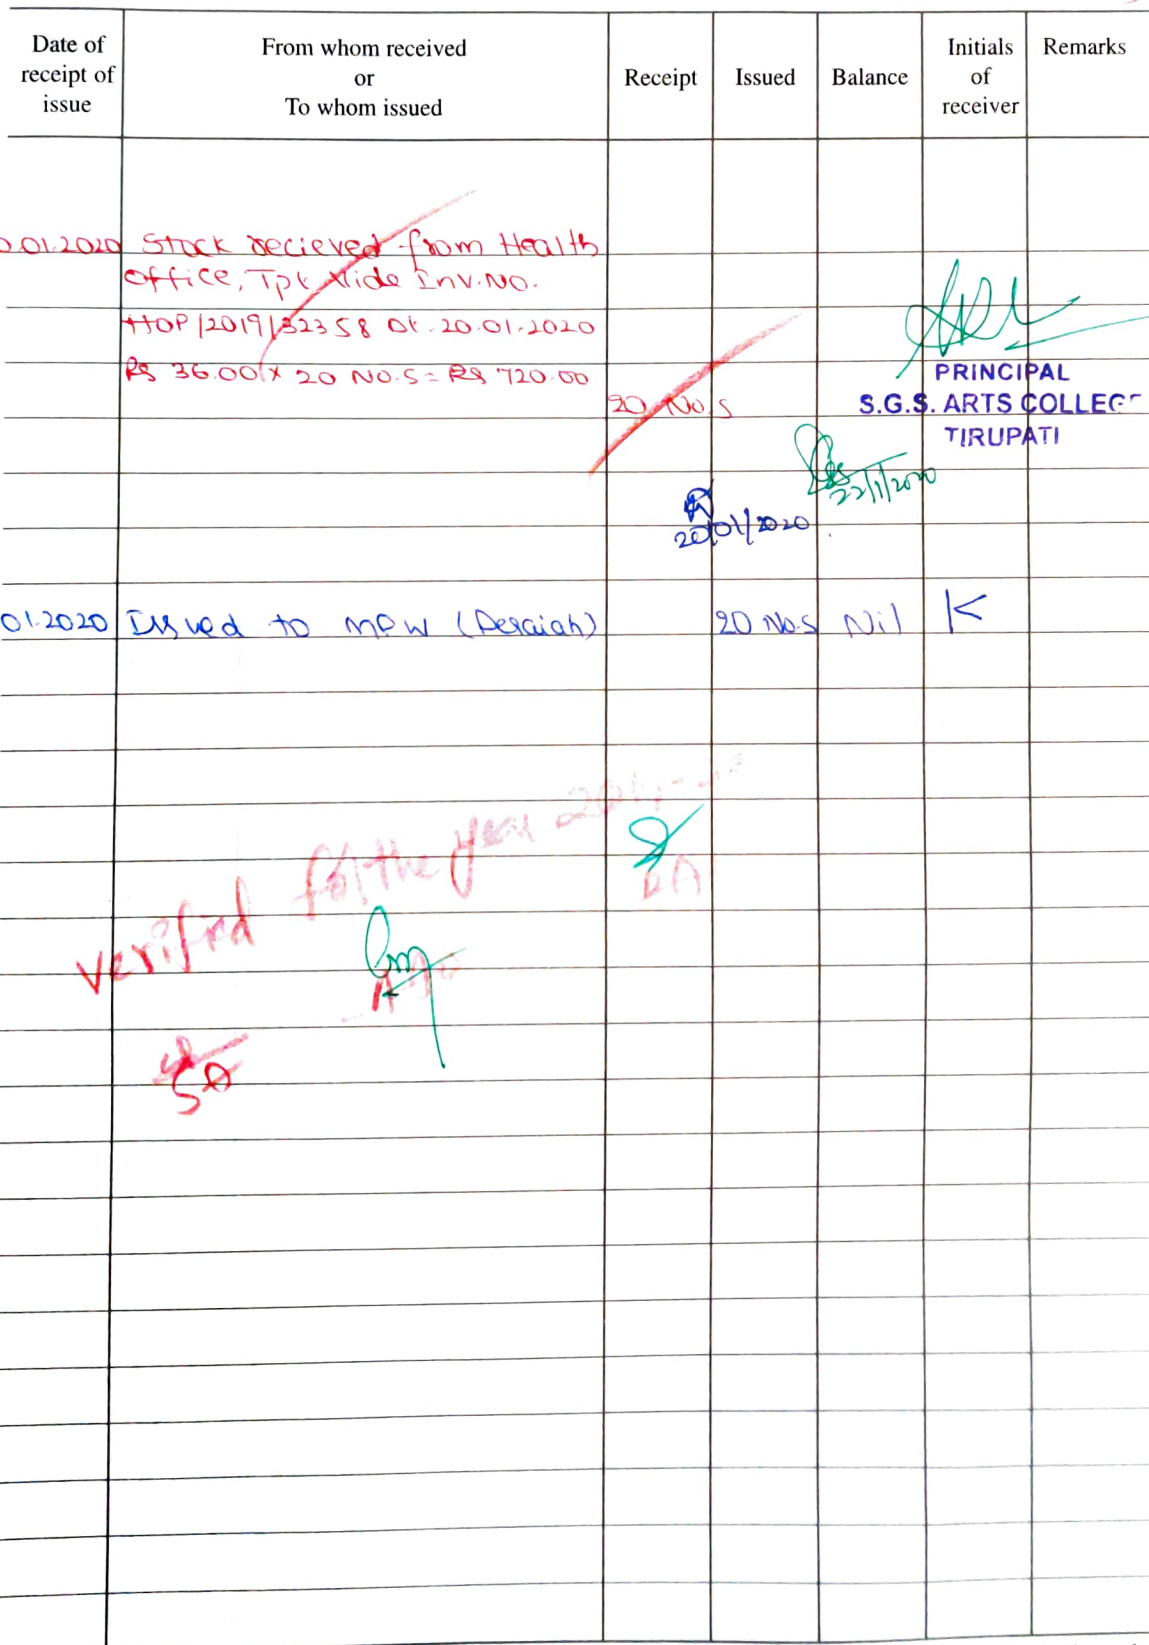 Date of receipt of issue
From whom received or To whom issued
Receipt
Issued
Balance
Initials of receiver
Remarks
0.01.2020 Stock recieved from Health
Office, Tpt Vide Inv.No.
HOP/2019/32358 Dt. 20.01.2020
Rs 36.00 x 20 NO.S = Rs 720.00
20 No.s
PRINCIPAL
S.G.S. ARTS COLLEGE
TIRUPATI
22/1/2020
20/01/2020
01.2020 Issued to MPW ( 20 No.s Nil K
verified for the year
DA
SA